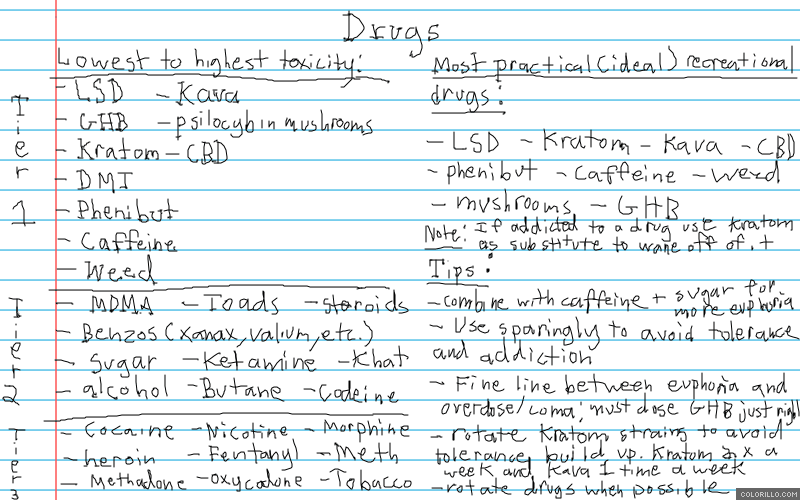 Drugs
Lowest to highest toxicity:
Tier 1
- LSD - Kava
- GHB - psilocybin mushrooms
- Kratom - CBD
- DMT
- Phenibut
- Caffeine
- Weed
Tier 2
- MDMA - Toads - steroids
- Benzos (xanax, valium, etc.)
- sugar - Ketamine - Khat
- alcohol - Butane - Codeine
Tier 3
- Cocaine - Nicotine - Morphine
- heroin - Fentanyl - Meth
- Methadone - oxycodone - Tobacco
Most practical (ideal) recreational
drugs:
- LSD - Kratom - Kava - CBD
- phenibut - Caffeine - weed
- mushrooms - GHB
Note: If addicted to a drug use Kratom
as substitute to wane off of it
Tips:
- combine with caffeine + sugar for
more euphoria
- Use sparingly to avoid tolerance
and addiction
- Fine line between euphoria and
overdose/coma; must dose GHB just right
- rotate Kratom strains to avoid
tolerance build up. Kratom 2x a
week and Kava 1 time a week
- rotate drugs when possible
COLORILLO.COM